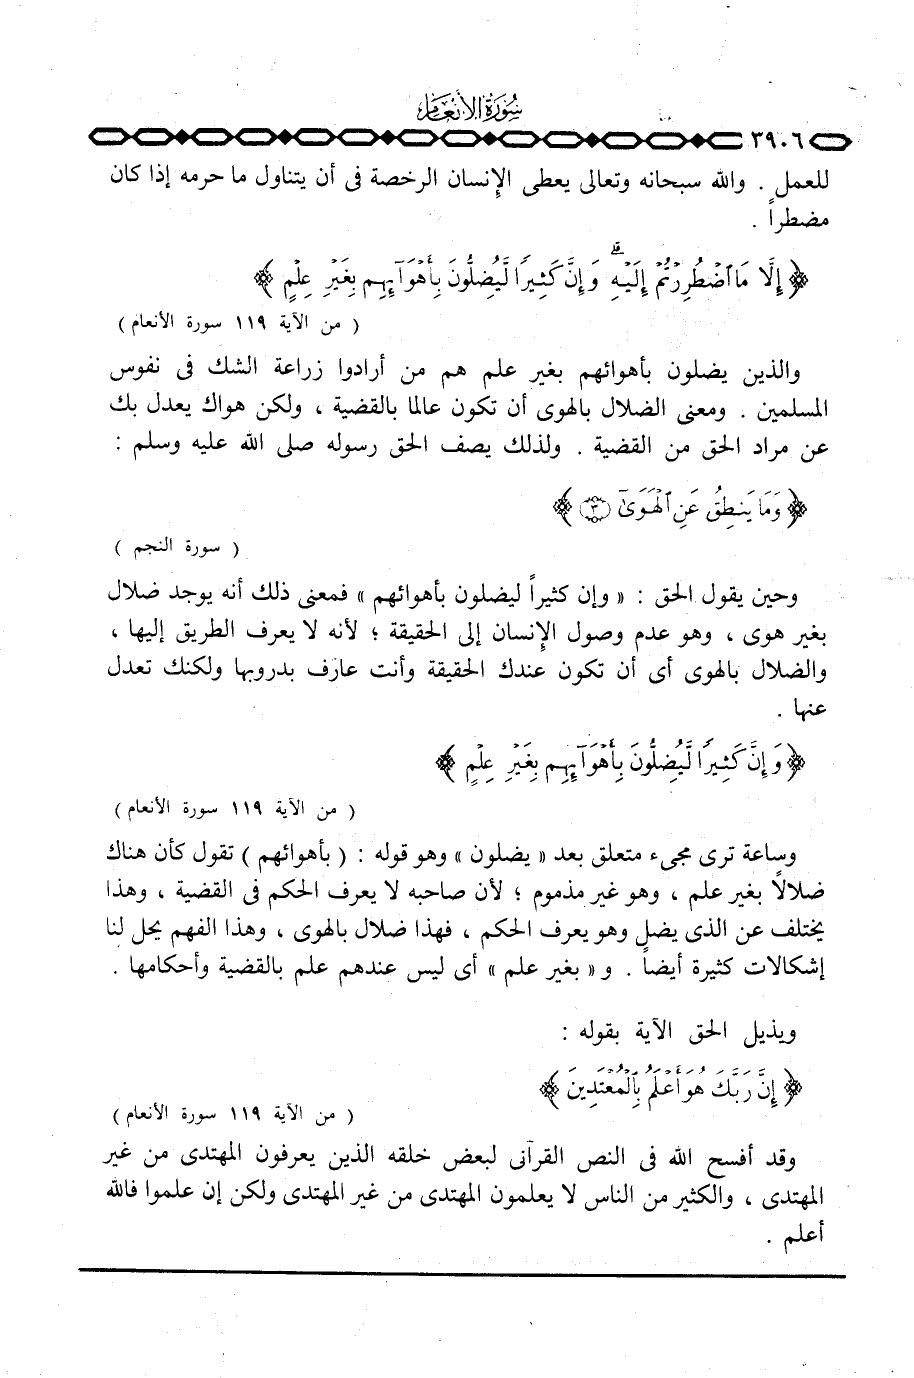 سُورَةُ الأَنْعَامِ
٣٩٠٦
للعمل . والله سبحانه وتعالى يعطى الإنسان الرخصة فى أن يتناول ما حرمه إذا كان
مضطراً .
﴿ إِلَّا مَا ٱضْطُرِرْتُمْ إِلَيْهِ ۗ وَإِنَّ كَثِيرًا لَّيُضِلُّونَ بِأَهْوَآئِهِم بِغَيْرِ عِلْمٍ ﴾
( من الآية ١١٩ سورة الأنعام )
والذين يضلون بأهوائهم بغير علم هم من أرادوا زراعة الشك فى نفوس
المسلمين . ومعنى الضلال بالهوى أن تكون عالما بالقضية ، ولكن هواك يعدل بك
عن مراد الحق من القضية . ولذلك يصف الحق رسوله صلى الله عليه وسلم :
﴿ وَمَا يَنطِقُ عَنِ ٱلْهَوَىٰٓ ٣ ﴾
( سورة النجم )
وحين يقول الحق : « وإن كثيراً ليضلون بأهوائهم » فمعنى ذلك أنه يوجد ضلال
بغير هوى ، وهو عدم وصول الإنسان إلى الحقيقة ؛ لأنه لا يعرف الطريق إليها ،
والضلال بالهوى أى أن تكون عندك الحقيقة وأنت عارف بدروبها ولكنك تعدل
عنها .
﴿ وَإِنَّ كَثِيرًا لَّيُضِلُّونَ بِأَهْوَآئِهِم بِغَيْرِ عِلْمٍ ﴾
( من الآية ١١٩ سورة الأنعام )
وساعة ترى مجىء متعلق بعد « يضلون » وهو قوله : ( بأهوائهم ) تقول كأن هناك
ضلالاً بغير علم ، وهو غير مذموم ؛ لأن صاحبه لا يعرف الحكم فى القضية ، وهذا
يختلف عن الذى يضل وهو يعرف الحكم ، فهذا ضلال بالهوى ، وهذا الفهم يحل لنا
إشكالات كثيرة أيضاً . و « بغير علم » أى ليس عندهم علم بالقضية وأحكامها .
ويذيل الحق الآية بقوله :
﴿ إِنَّ رَبَّكَ هُوَ أَعْلَمُ بِٱلْمُعْتَدِينَ ﴾
( من الآية ١١٩ سورة الأنعام )
وقد أفسح الله فى النص القرآنى لبعض خلقه الذين يعرفون المهتدى من غير
المهتدى ، والكثير من الناس لا يعلمون المهتدى من غير المهتدى ولكن إن علموا فالله
أعلم .